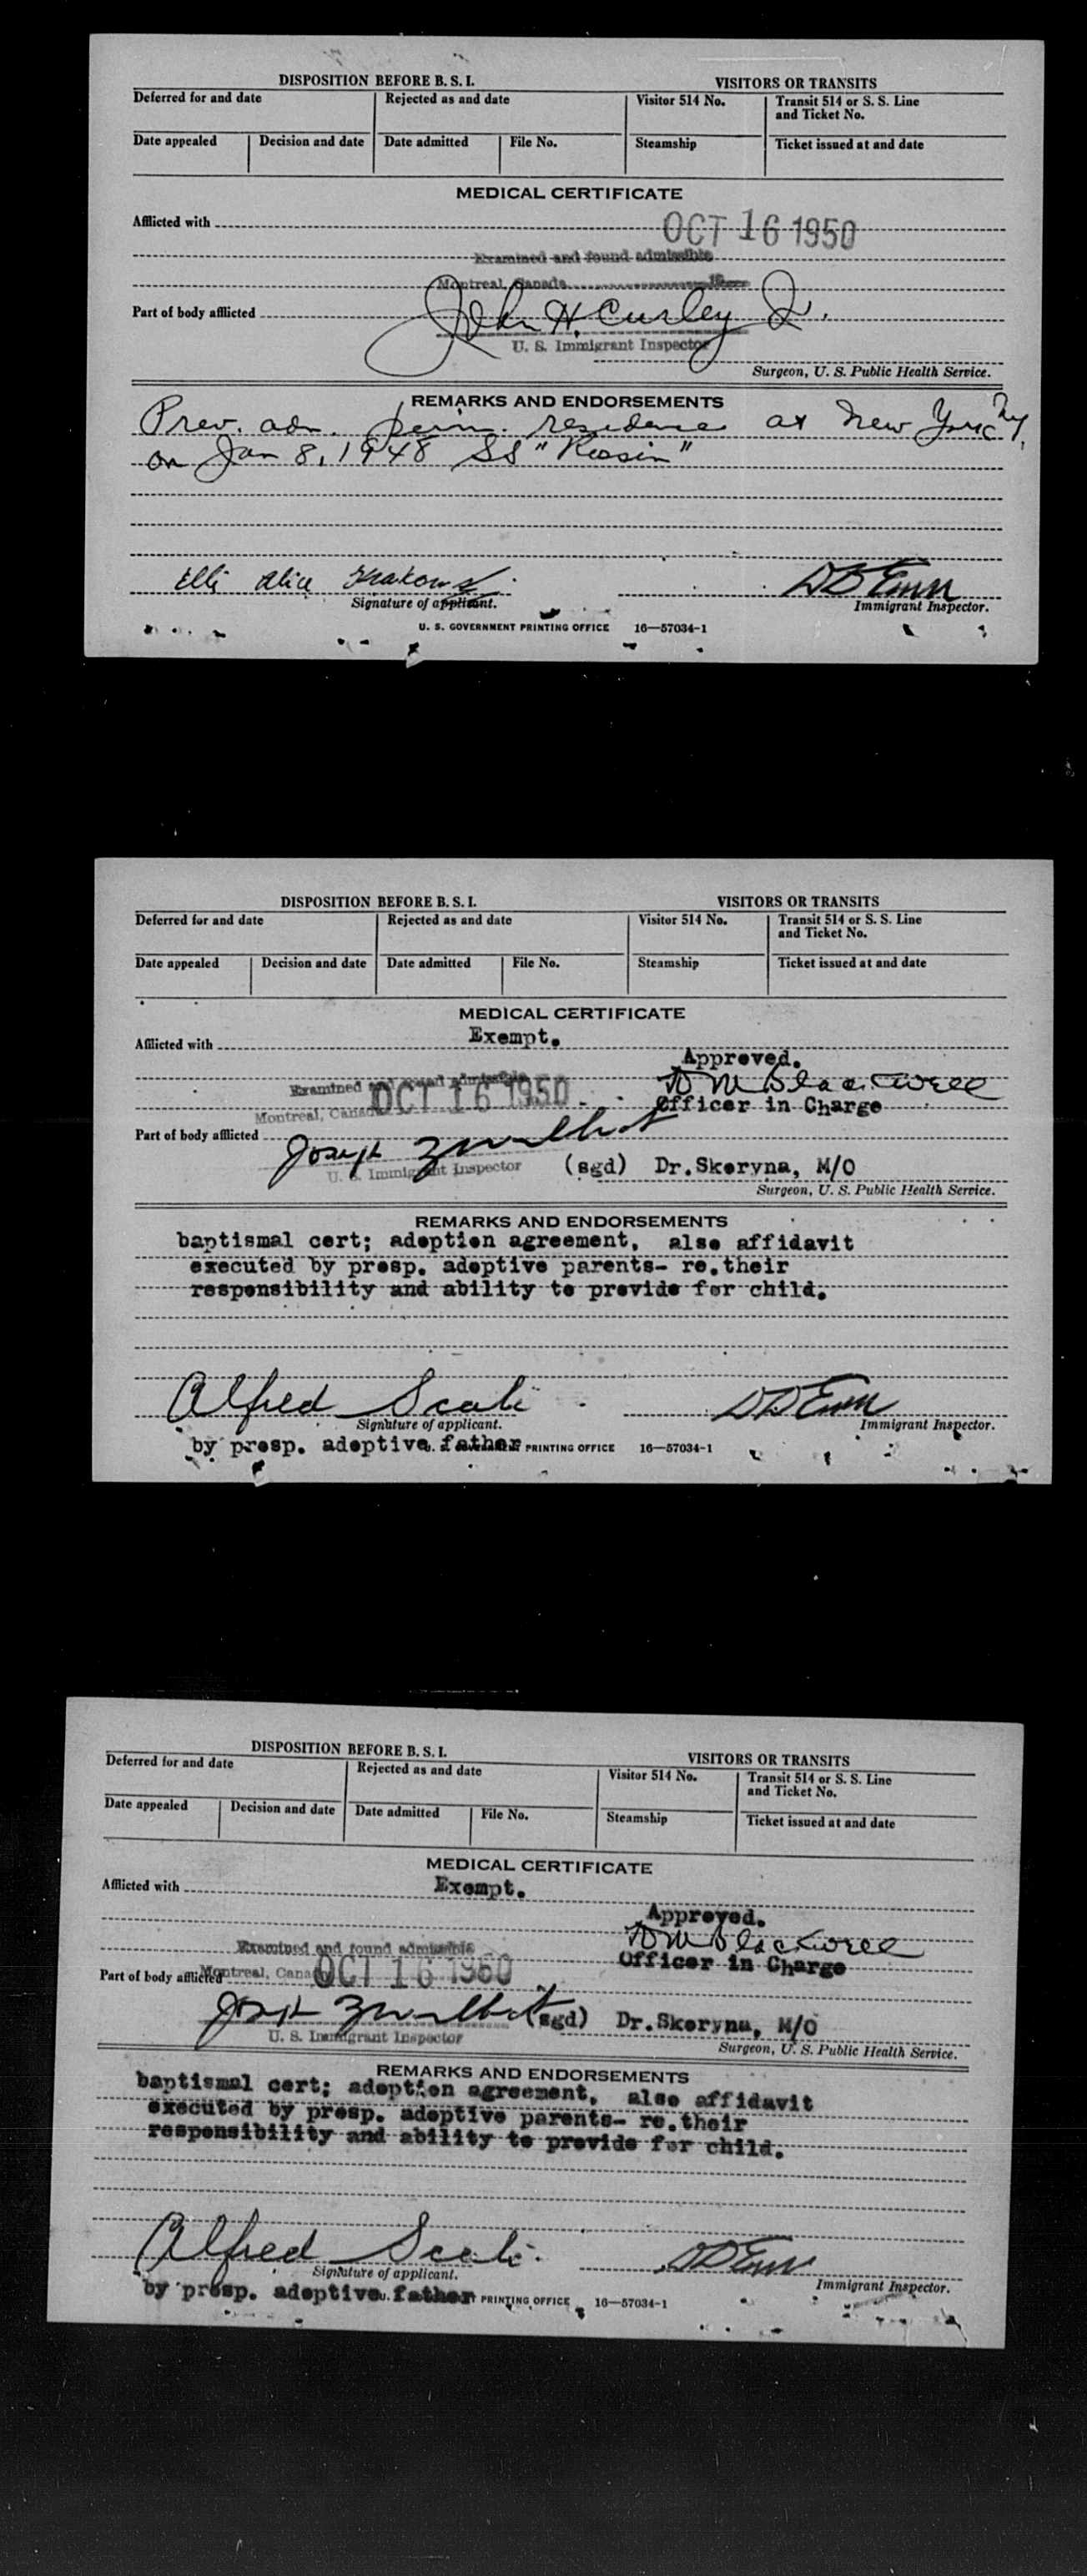 DISPOSITION BEFORE B. S. I. VISITORS OR TRANSITS
Deferred for and date Rejected as and date Visitor 514 No. Transit 514 or S. S. Line and Ticket No.
Date appealed Decision and date Date admitted File No. Steamship Ticket issued at and date
MEDICAL CERTIFICATE
Afflicted with
OCT 16 1950
Examined and found admissible
Montreal, Canada
Part of body afflicted
John H. Curley Jr.
U. S. Immigrant Inspector
Surgeon, U. S. Public Health Service.
REMARKS AND ENDORSEMENTS
Prev. adm. perm. residence at New York Ny.
on Jan 8, 1948 SS
Elli Alice
Signature of applicant. Immigrant Inspector.
U. S. GOVERNMENT PRINTING OFFICE 16—57034-1
DISPOSITION BEFORE B. S. I. VISITORS OR TRANSITS
Deferred for and date Rejected as and date Visitor 514 No. Transit 514 or S. S. Line and Ticket No.
Date appealed Decision and date Date admitted File No. Steamship Ticket issued at and date
MEDICAL CERTIFICATE
Afflicted with Exempt.
Approved.
Examined and found admissible
OCT 16 1950
Montreal, Canada
Officer in Charge
Part of body afflicted
Joseph
U. S. Immigrant Inspector
(sgd) Dr.Skoryna, M/O
Surgeon, U. S. Public Health Service.
REMARKS AND ENDORSEMENTS
baptismal cert; adoption agreement, also affidavit
executed by presp. adoptive parents- re.their
responsibility and ability to provide for child.
Alfred Scali
Signature of applicant. Immigrant Inspector.
by presp. adoptive father PRINTING OFFICE 16—57034-1
DISPOSITION BEFORE B. S. I. VISITORS OR TRANSITS
Deferred for and date Rejected as and date Visitor 514 No. Transit 514 or S. S. Line and Ticket No.
Date appealed Decision and date Date admitted File No. Steamship Ticket issued at and date
MEDICAL CERTIFICATE
Afflicted with Exempt.
Approved.
Examined and found admissible
Officer in Charge
Part of body afflicted Montreal, Canada OCT 16 1950
Joseph
(sgd) Dr.Skoryna, M/O
U. S. Immigrant Inspector
Surgeon, U. S. Public Health Service.
REMARKS AND ENDORSEMENTS
baptismal cert; adoption agreement, also affidavit
executed by presp. adoptive parents- re.their
responsibility and ability to provide for child.
Alfred Scali
Signature of applicant. Immigrant Inspector.
by presp. adoptive father PRINTING OFFICE 16—57034-1